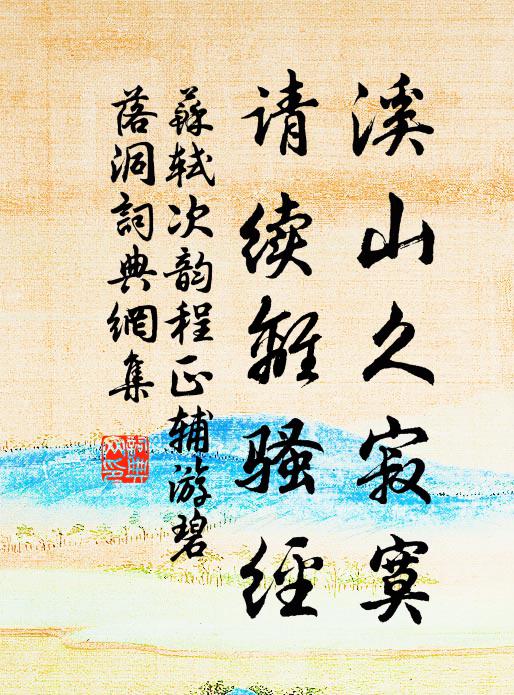 溪山久寂寞
请续離骚經
蘇轼次韵程正辅游碧
落洞詞典網集